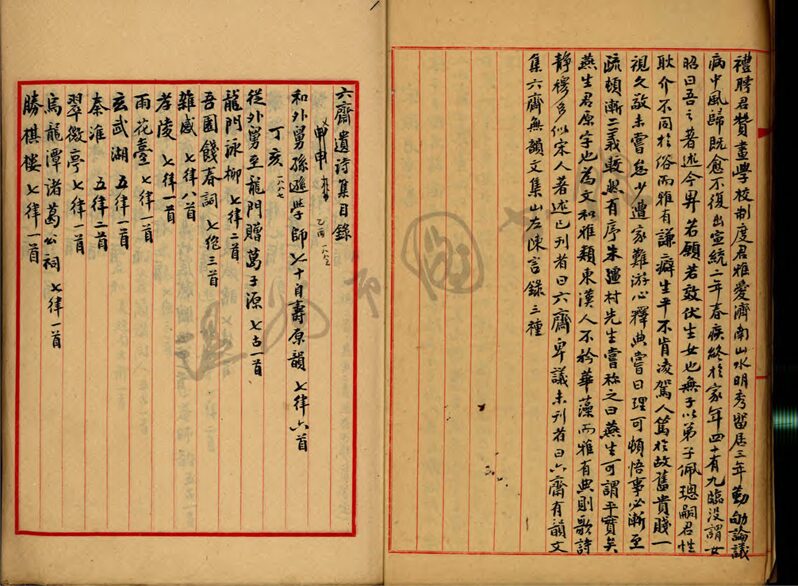 禮聘君贊畫學校制度君雅愛濟南山水明秀留居三年勤劬論議
病中風歸既愈不復出宣統二年春疾終於家年四十有九臨沒謂女
昭曰吾之著述今畀若願若效伏生女也無子以弟子佩璁嗣君性
耿介不同於俗而雅有謙癖生平不肯凌駕人篤於故舊貴賤一
視久敬未嘗怠少遭家難游心釋典嘗曰理可頓悟事必漸至
疏頓漸二義暫與有序朱 村先生嘗稱之曰燕生可謂平實矣
燕生君原字也為文和雅類東漢人不矜華藻而雅有典則歌詩
靜穆多似宋人著述已刊者曰六齋卑議未刊者曰六齋有韻文
集六齋無韻文集山左陳言錄三種
六齋遺詩集目錄
甲申 乙酉
和外舅孫遜學師七十自壽原韻 七律六首
丁亥 一八八七
從外舅至龍門贈葛子源 七古一首
龍門詠柳 七律二首
吾園餞春詞 七絕三首
雜感 七律八首
孝陵 七律一首
雨花臺 七律一首
玄武湖 五律一首
秦淮 五律二首
翠微亭 七律一首
烏龍潭諸葛公祠 七律一首
勝棋樓 七律一首